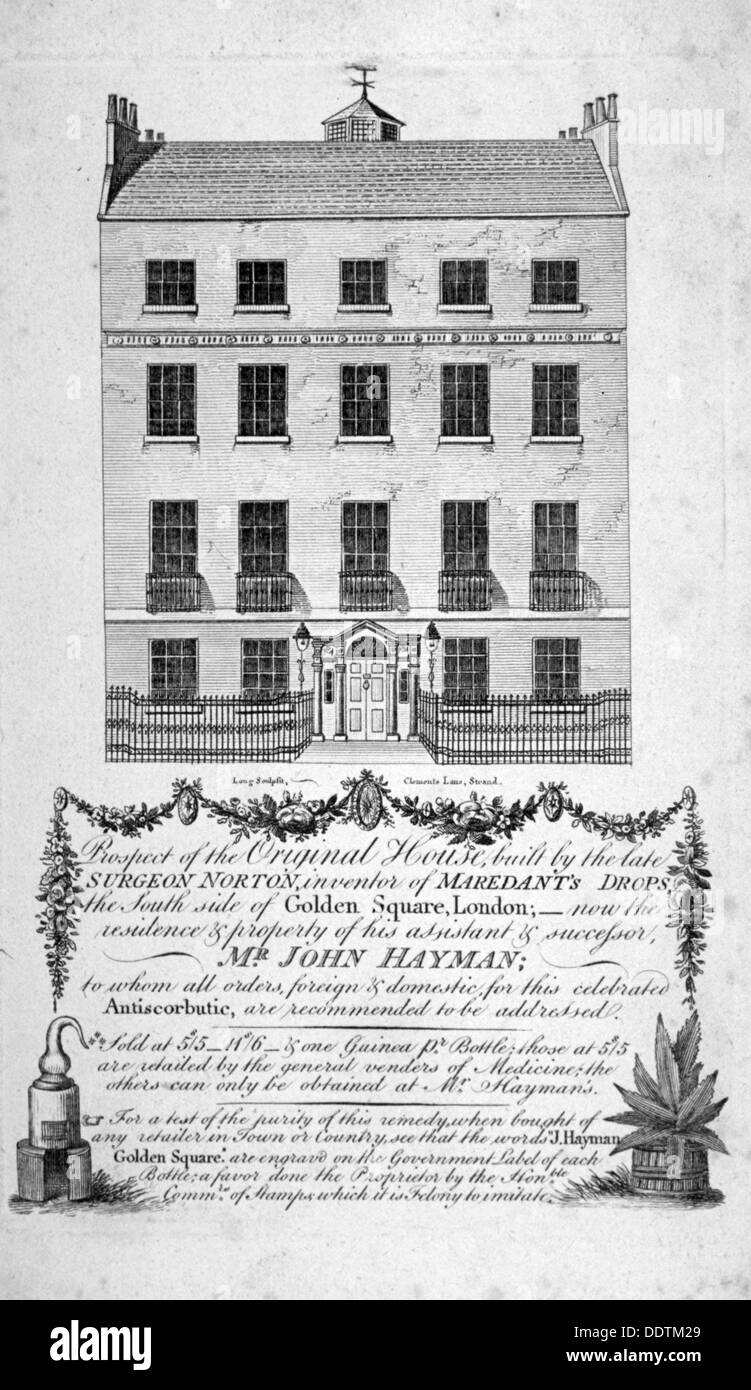 alamy
alamy
a
a
Long Sculpsit, Clements Lane, Strand.
Prospect of the Original House, built by the late
SURGEON NORTON, inventor of MAREDANT's DROPS,
the South side of Golden Square, London; — now the
residence & property of his assistant & successor,
MR. JOHN HAYMAN;
to whom all orders, foreign & domestic, for this celebrated
Antiscorbutic, are recommended to be addressed.
Sold at 5s/5 — 11s/6 — & one Guinea pr. Bottle; those at 5s/5
are retailed by the general venders of Medicine; the
others can only be obtained at Mr. Hayman's.
For a test of the purity of this remedy, when bought of
any retailer in Town or Country, see that the words "J. Hayman
Golden Square." are engrav'd on the Government Label of each
Bottle; a favor done the Proprietor by the Honble.
Commrs. of Stamps, which it is Felony to imitate.
alamy
Image ID: DDTM29
www.alamy.com